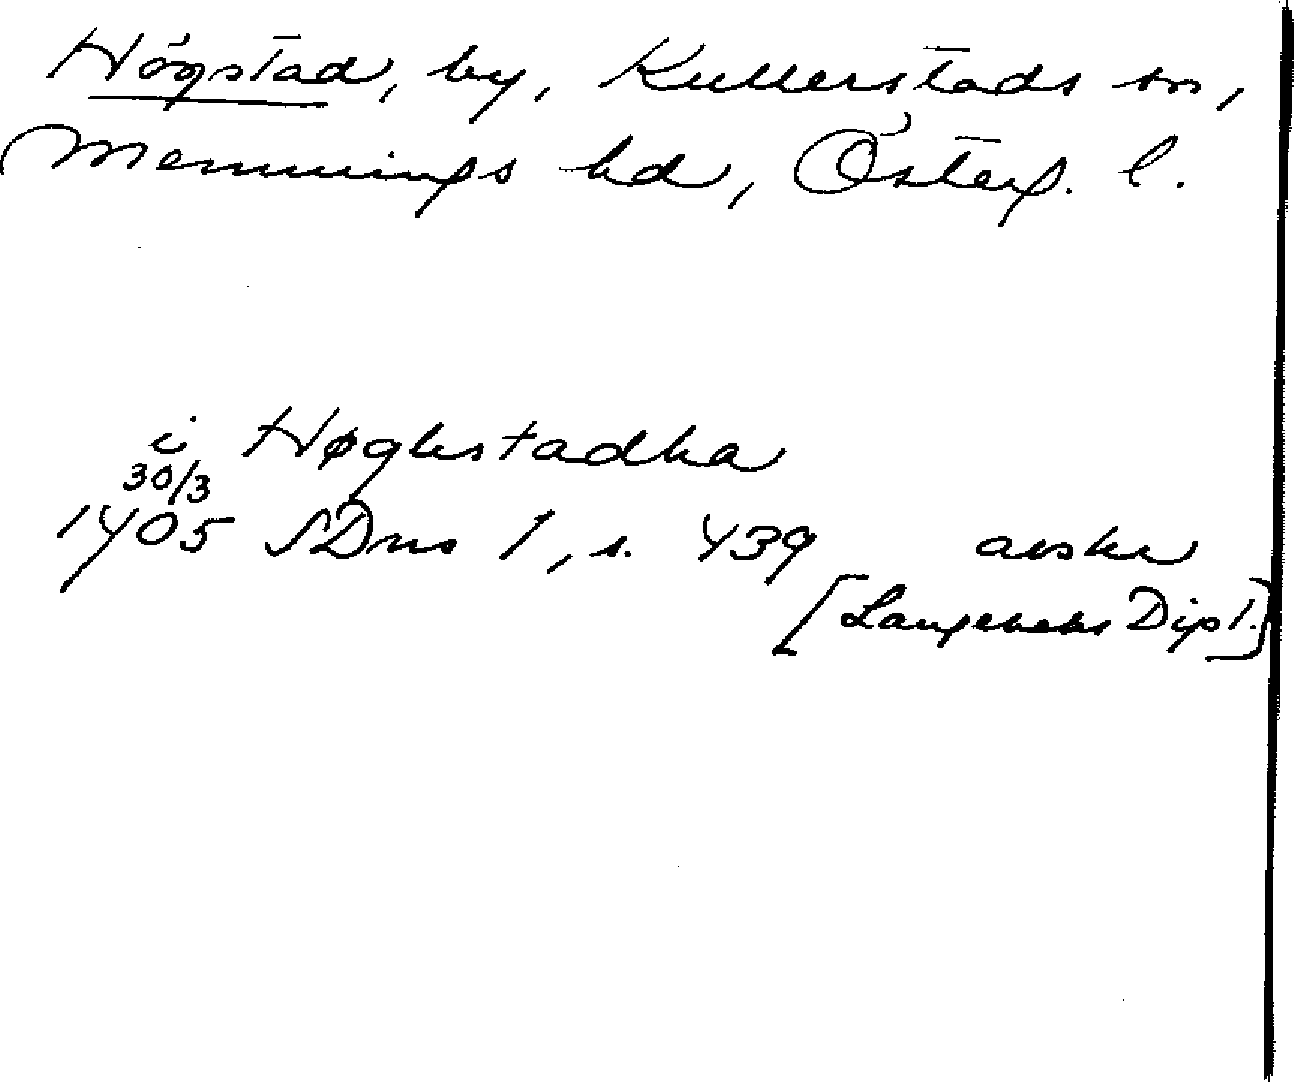 Högstad, by, Kullerstads sn,
Memmings hd, Österg. l.
i Høghstadha
30/3
1405 SDns 1, s. 439 avskr
[Langebeks Dipl.]